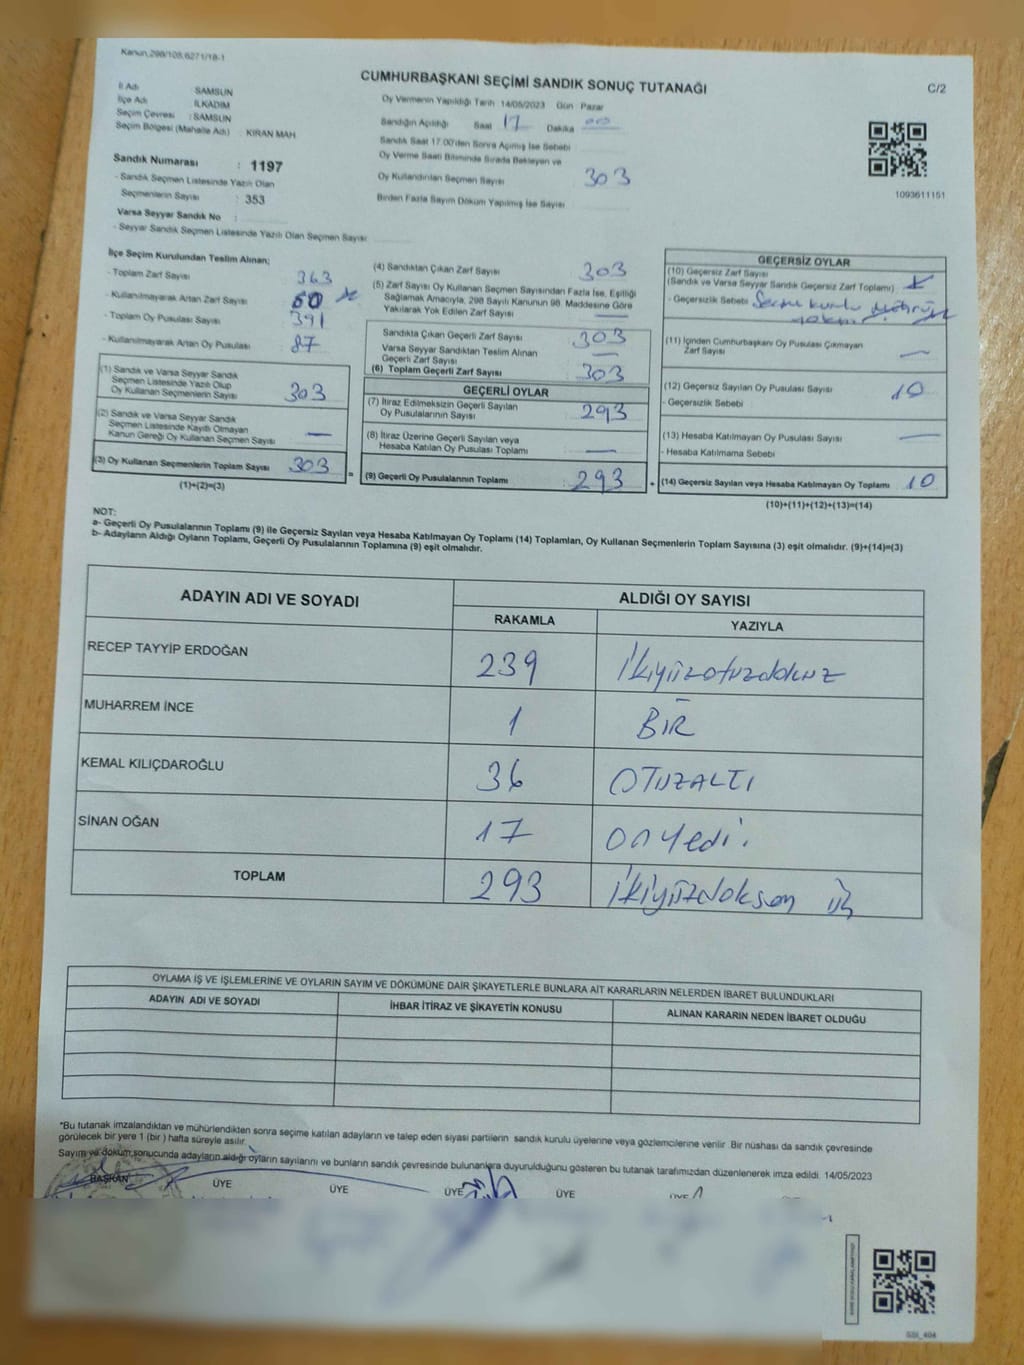 Kanun,298/105,6271/18-1
CUMHURBAŞKANI SEÇİMİ SANDIK SONUÇ TUTANAĞI
C/2
İl Adı : SAMSUN
İlçe Adı : İLKADIM
Seçim Çevresi : SAMSUN
Seçim Bölgesi (Mahalle Adı) : KIRAN MAH
Sandık Numarası : 1197
- Sandık Seçmen Listesinde Yazılı Olan
Seçmenlerin Sayısı : 353
Varsa Seyyar Sandık No :
- Seyyar Sandık Seçmen Listesinde Yazılı Olan Seçmen Sayısı:
Oy Vermenin Yapıldığı Tarih 14/05/2023 Gün Pazar
Sandığın Açıldığı Saat 17 Dakika 00
Sandık Saat 17.00'den Sonra Açılmış İse Sebebi
Oy Verme Saati Bitiminde Sırada Bekleyen ve
Oy Kullandırılan Seçmen Sayısı 303
Birden Fazla Sayım Döküm Yapılmış İse Sayısı
1093611151
İlçe Seçim Kurulundan Teslim Alınan;
- Toplam Zarf Sayısı 363
- Kullanılmayarak Artan Zarf Sayısı 60
- Toplam Oy Pusulası Sayısı 391
- Kullanılmayarak Artan Oy Pusulası 87
(1) Sandık ve Varsa Seyyar Sandık
Seçmen Listesinde Yazılı Olup
Oy Kullanan Seçmenlerin Sayısı 303
(2) Sandık ve Varsa Seyyar Sandık
Seçmen Listesinde Kayıtlı Olmayan
Kanun Gereği Oy Kullanan Seçmen Sayısı —
(3) Oy Kullanan Seçmenlerin Toplam Sayısı 303
(1)+(2)=(3)
(4) Sandıktan Çıkan Zarf Sayısı 303
(5) Zarf Sayısı Oy Kullanan Seçmen Sayısından Fazla İse, Eşitliği
Sağlamak Amacıyla, 298 Sayılı Kanunun 98. Maddesine Göre
Yakılarak Yok Edilen Zarf Sayısı —
Sandıkta Çıkan Geçerli Zarf Sayısı 303
Varsa Seyyar Sandıktan Teslim Alınan
Geçerli Zarf Sayısı —
(6) Toplam Geçerli Zarf Sayısı 303
GEÇERLİ OYLAR
(7) İtiraz Edilmeksizin Geçerli Sayılan
Oy Pusulalarının Sayısı 293
(8) İtiraz Üzerine Geçerli Sayılan veya
Hesaba Katılan Oy Pusulası Toplamı —
= (9) Geçerli Oy Pusulalarının Toplamı : 293 +
GEÇERSİZ OYLAR
(10) Geçersiz Zarf Sayısı
(Sandık ve Varsa Seyyar Sandık Geçersiz Zarf Toplamı)
- Geçersizlik Sebebi Seçim kurulu mührü
(11) İçinden Cumhurbaşkanı Oy Pusulası Çıkmayan
Zarf Sayısı —
(12) Geçersiz Sayılan Oy Pusulası Sayısı 10
- Geçersizlik Sebebi
(13) Hesaba Katılmayan Oy Pusulası Sayısı —
- Hesaba Katılmama Sebebi
(14) Geçersiz Sayılan veya Hesaba Katılmayan Oy Toplamı 10
(10)+(11)+(12)+(13)=(14)
NOT:
a- Geçerli Oy Pusulalarının Toplamı (9) ile Geçersiz Sayılan veya Hesaba Katılmayan Oy Toplamı (14) Toplamları, Oy Kullanan Seçmenlerin Toplam Sayısına (3) eşit olmalıdır. (9)+(14)=(3)
b- Adayların Aldığı Oyların Toplamı, Geçerli Oy Pusulalarının Toplamına (9) eşit olmalıdır.
ADAYIN ADI VE SOYADI
ALDIĞI OY SAYISI
RAKAMLA YAZIYLA
RECEP TAYYİP ERDOĞAN 239 İkiyüzotuzdokuz
MUHARREM İNCE 1 BİR
KEMAL KILIÇDAROĞLU 36 OTUZALTI
SİNAN OĞAN 17 onyedi.
TOPLAM 293 İkiyüzdoksan üç
OYLAMA İŞ VE İŞLEMLERİNE VE OYLARIN SAYIM VE DÖKÜMÜNE DAİR ŞİKAYETLERLE BUNLARA AİT KARARLARIN NELERDEN İBARET BULUNDUKLARI
ADAYIN ADI VE SOYADI İHBAR İTİRAZ VE ŞİKAYETİN KONUSU ALINAN KARARIN NEDEN İBARET OLDUĞU
*Bu tutanak imzalandıktan ve mühürlendikten sonra seçime katılan adayların ve talep eden siyasi partilerin sandık kurulu üyelerine veya gözlemcilerine verilir. Bir nüshası da sandık çevresinde
görülecek bir yere 1 (bir ) hafta süreyle asılır.
Sayım ve döküm sonucunda adayların aldığı oyların sayılarını ve bunların sandık çevresinde bulunanlara duyurulduğunu gösteren bu tutanak tarafımızdan düzenlenerek imza edildi. 14/05/2023
BAŞKAN ÜYE ÜYE ÜYE ÜYE ÜYE
SSI_404